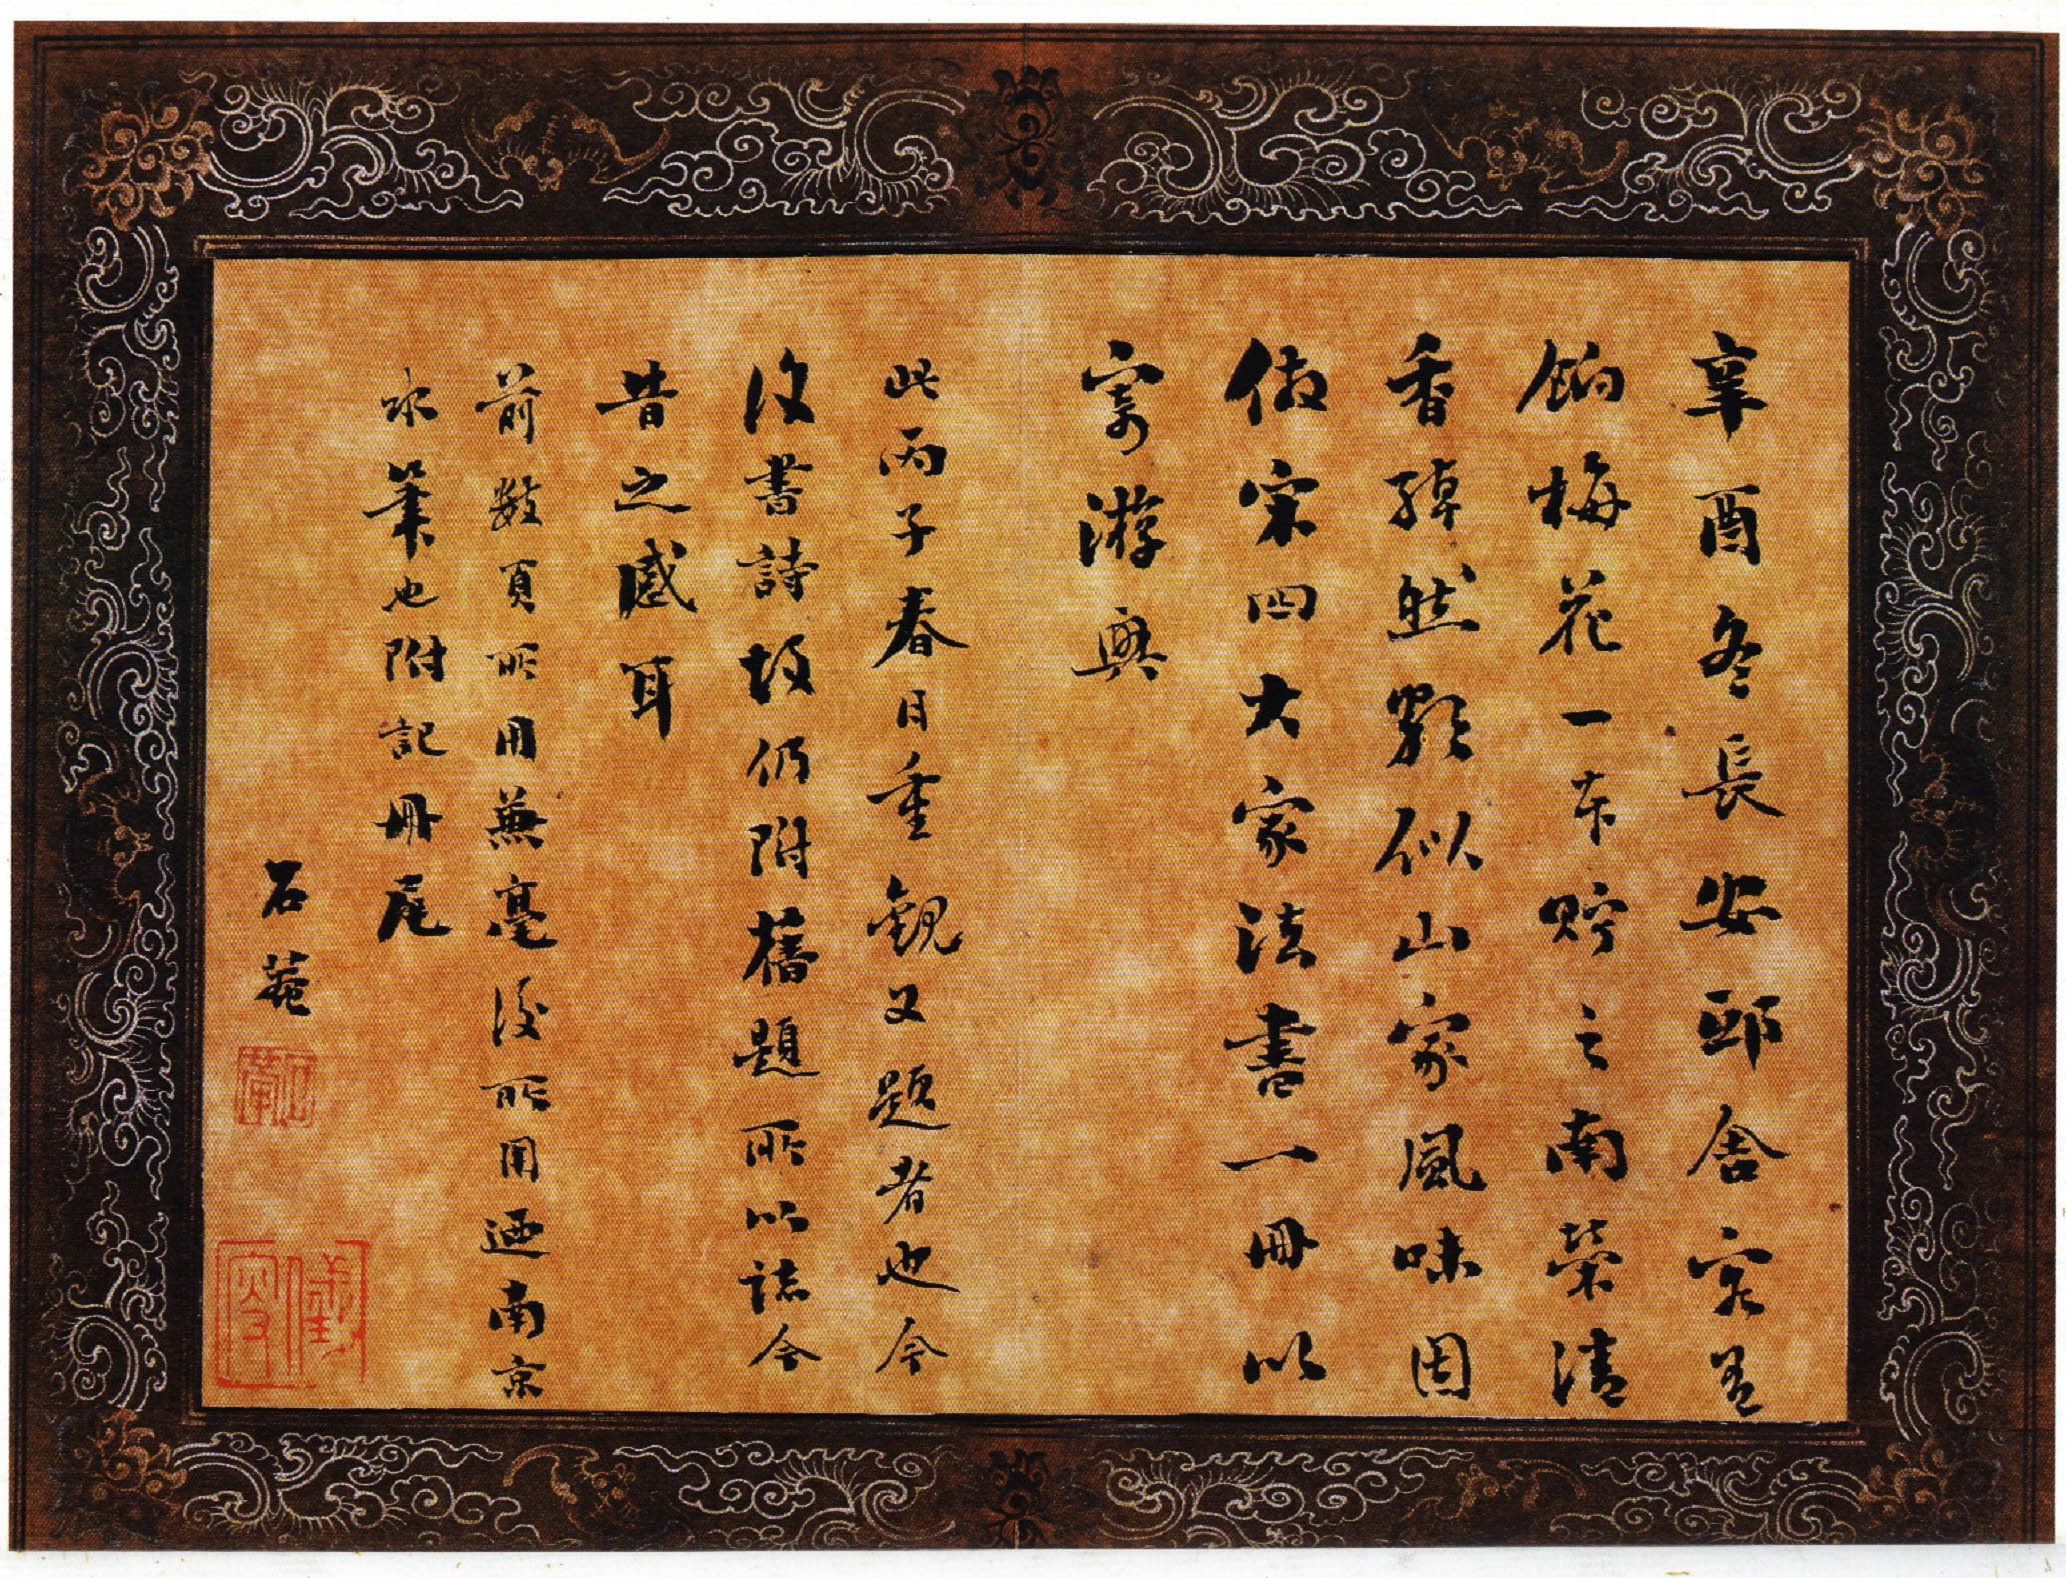 辛酉冬長安邸舍客有
餉梅花一本貯之南榮清
香綽然頗似山家風味因
倣宋四大家法書一冊以
寄游興
此丙子春日重觀又題者也今
復書詩故仍附舊題所以誌今
昔之感耳
前數頁所用兼毫後所用迺南京
水筆也附記冊尾
石菴